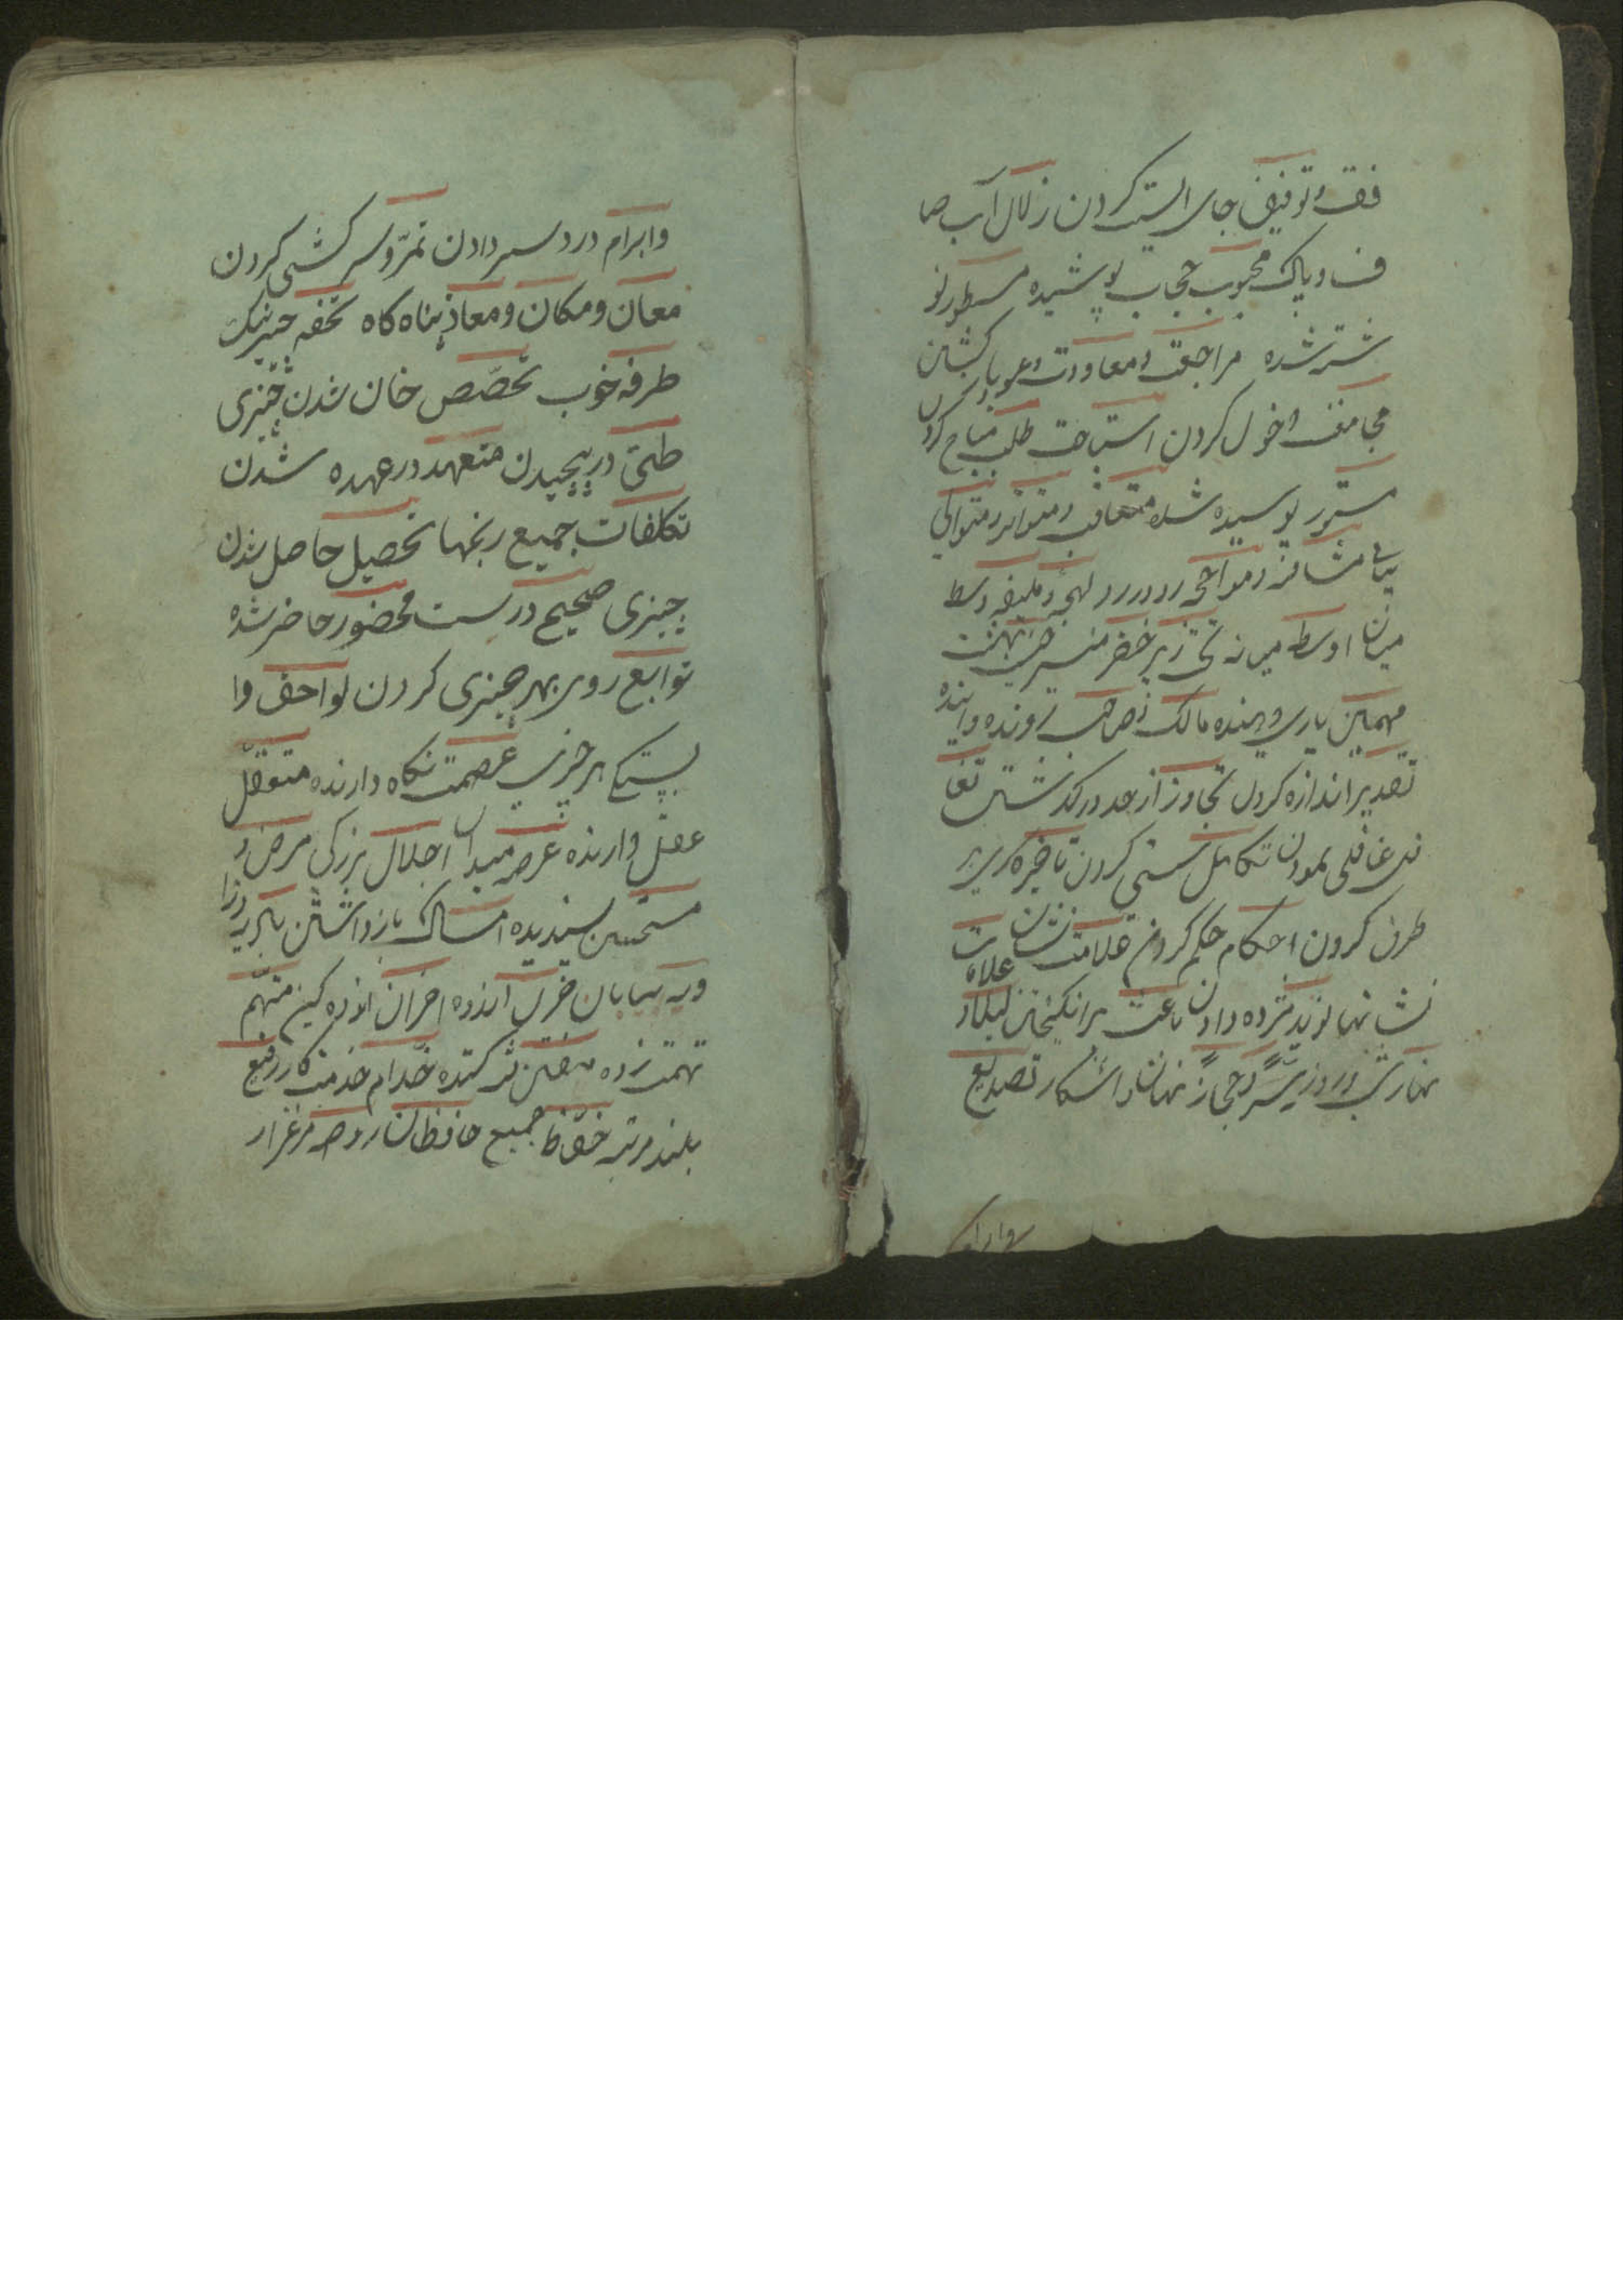 فقت وتوفیق جای الیست کردن زلال آب صا
ف و پاک محجوب حجاب پوشیده مسطور نو
شته شده مراجعت ومعاودت وعود باز کشتن
مجامعت دخول کردن استباحت طلب مباح کردن
مستور پوسیده شده متعاقب ومتواتر ومتوالی
پیاپی مشافه ومواجهه رو در رو لهجه وسط
میان اوسط میانه تحت زیر خضر سبز جنت بهشت
مهمین یاری دهنده مالک ذهاب رونده وآینده
تقدیر اندازه کردن تجاوز از حد در گذشتن تغا
فل غافلی نمودن تکاهل سستی کردن تاخیر
طرف کردن احکام حکم کردن علامت نشان علامات
نشانها نوید مژده دادن باعث برانگیختن لیلا و
نهارا شب وروز سرّاً وجهاراً نهان واشکار تصدیع
وابرام
وابرام درد سر دادن تمرّد سر کشی کردن
معان ومکان ومعاذ پناه کاه تحفه چیز نیک
طرفه خوب تخصّص خان شدن چیزی
طیّ در پیچیدن متعهد در عهده شدن
تکلفات جمیع رنجها تحصیل حاصل شدن
چیزی صحیح درست محضور حاضر شده
توابع روی بهر چیزی کردن لواحق وا
پستیکی هر چیزی عصمت نکاه دارنده متعقّل
عقل دارنده عرصه میدان اجلال بزرکی مرض و
مستحسن پسندیده امساک باز داشتن بادیه
ویه بیابان حزن اندوه احزان اندوه کین متهّم
تهمت زده کننده خدّام خدمت کار رفیع
بلند مرتبه حفّاظ جمیع حافظان روضه مرغزار